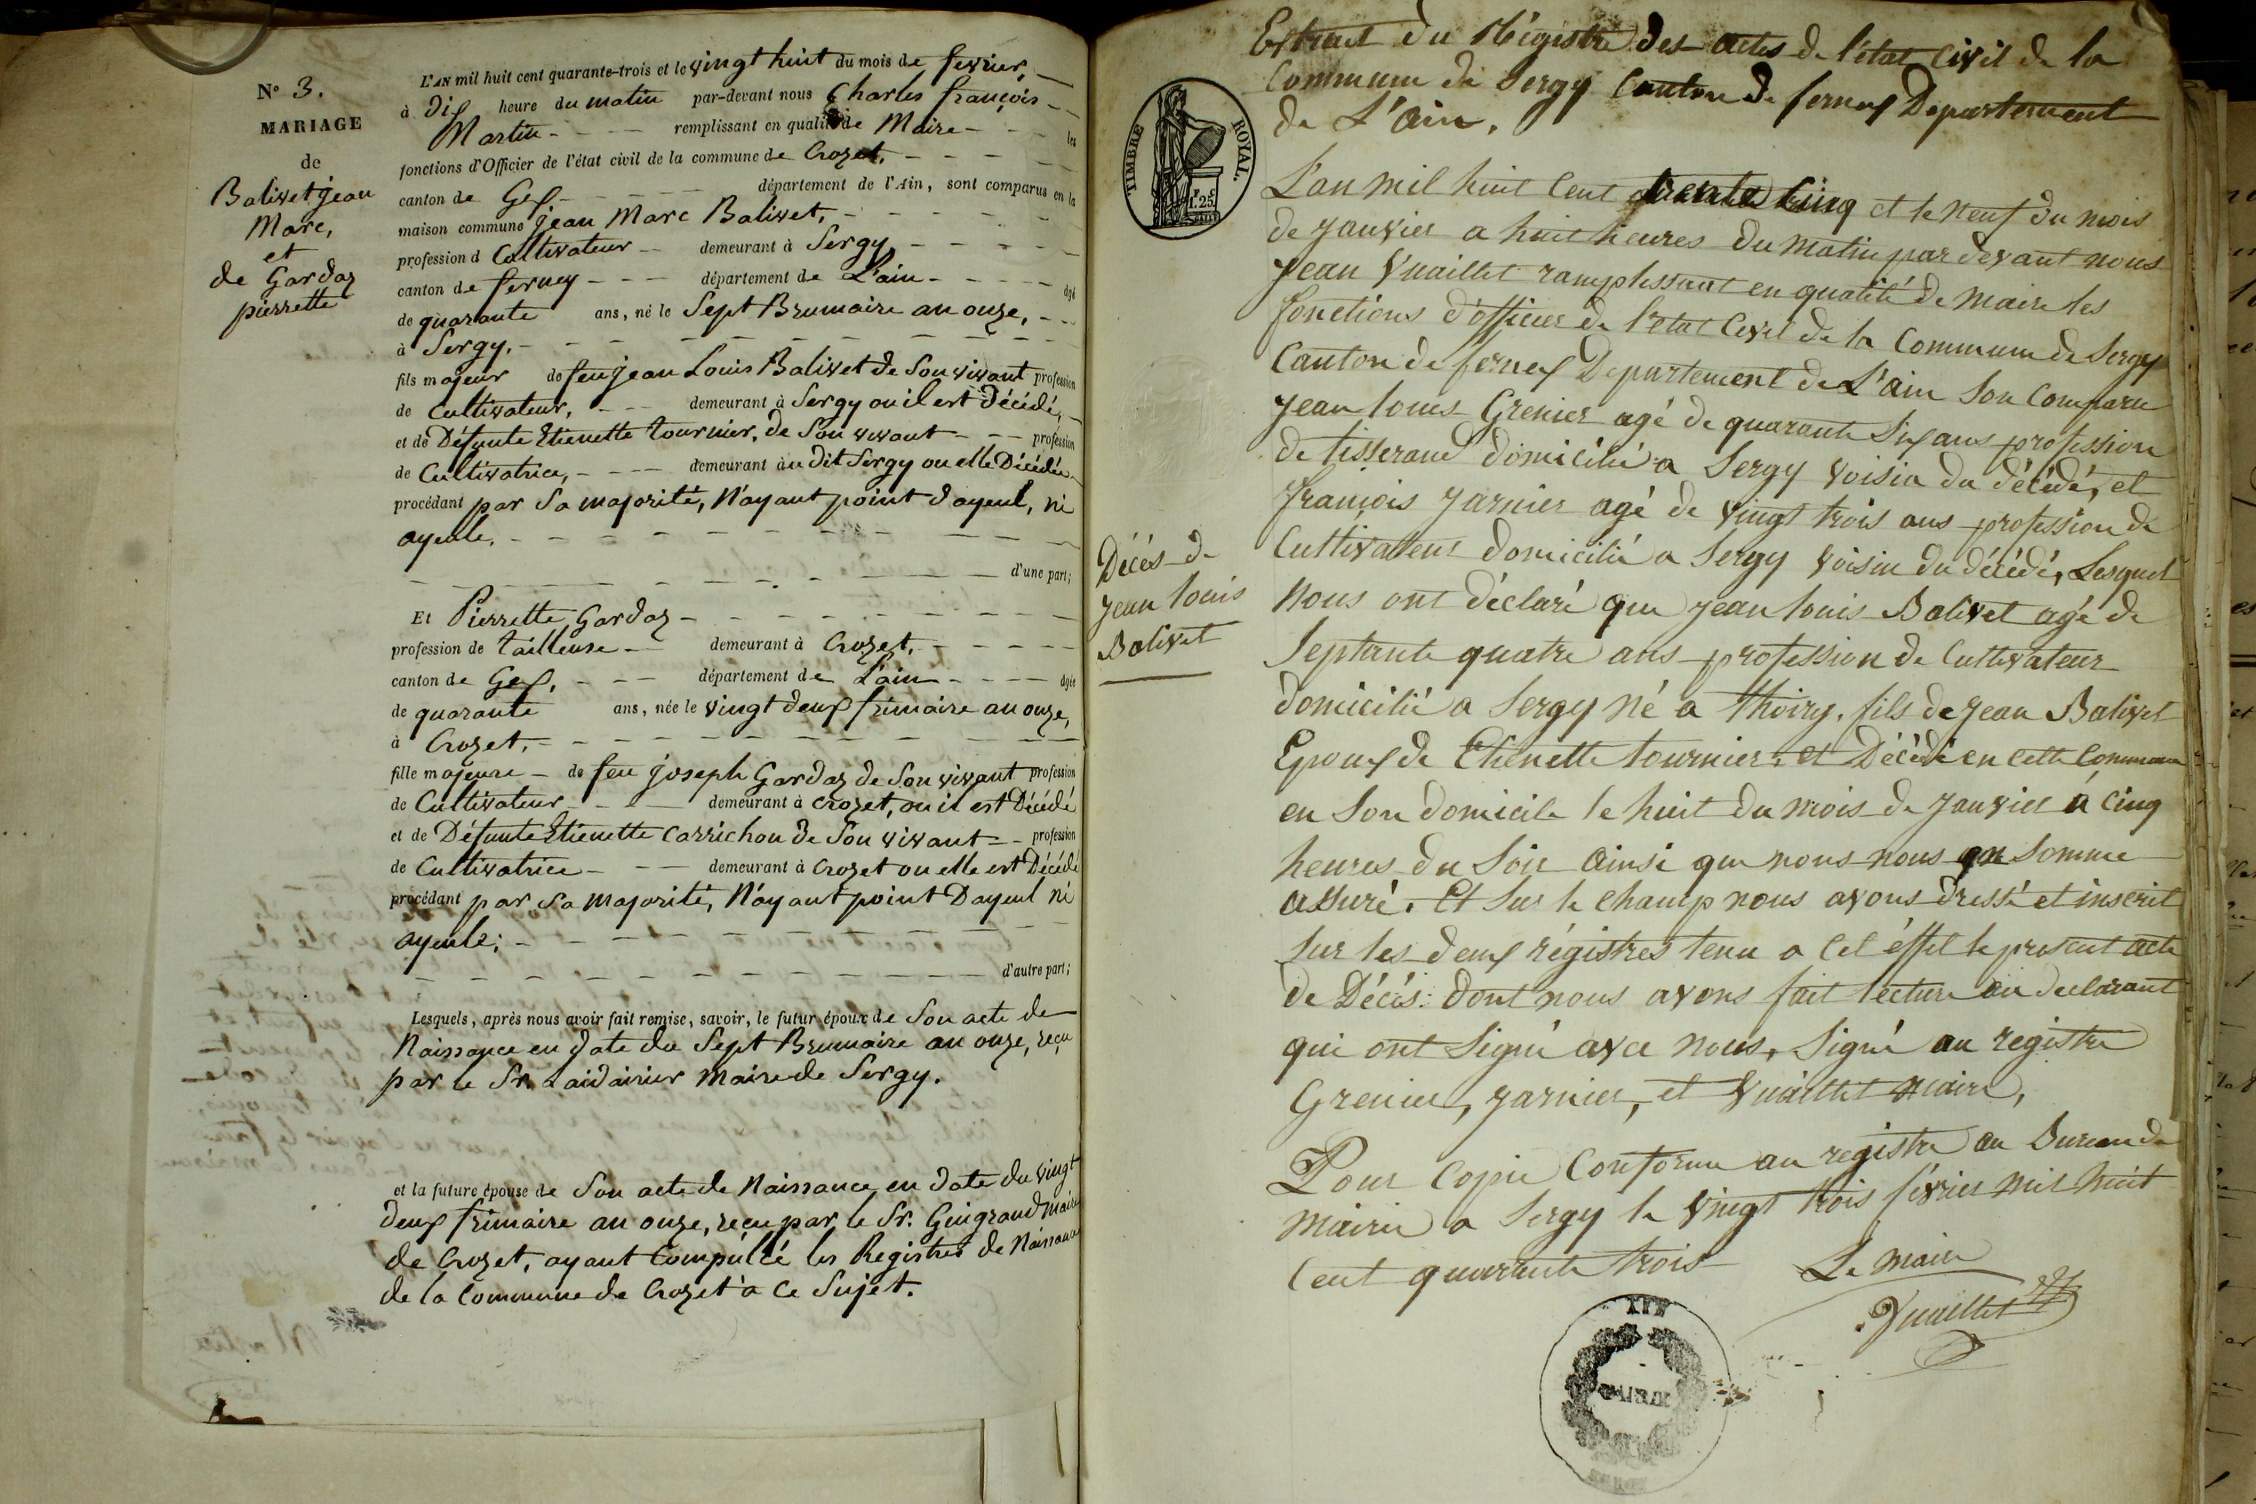 N° 3.
MARIAGE
de
Balivet jean
Marc,
et
de Gardaz
pierrette
L'AN mil huit cent quarante-trois et le vingt huit du mois de fevrier,
à dix heure du matin par-devant nous Charles françois
Martin - remplissant en qualité de Maire - les
fonctions d'Officier de l'état civil de la commune de Crozet,
canton de Gex - département de l'Ain, sont comparus en la
maison commune jean Marc Balivet,
profession d Cultivateur - demeurant à Sergy,
canton de ferney - département de L'ain - âgé
de quarante ans, né le Sept Brumaire an onze,
à Sergy.
fils majeur de feu jean Louis Balivet de Son vivant profession
de Cultivateur, - demeurant à Sergy ou il est Décédé,
et de Défunte Etienette tournier, de Son vivant - profession
de Cultivatrice, - demeurant au dit Sergy ou elle Décédée
procédant par Sa majorité, N'ayant point d'ayeul, ni
ayeule.
d'une part;
Et Pierrette Gardaz
profession de tailleuse - demeurant à Crozet,
canton de Gex, - département de L'ain - âgée
de quarante ans, née le vingt deux frimaire an onze,
à Crozet,
fille majeure - de feu joseph Gardaz de Son vivant profession
de Cultivateur - demeurant à Crozet, ou il est Décédé
et de Défunte Etienette Carrichon de Son vivant - profession
de Cultivatrice - demeurant à Crozet ou elle est Décédé
procédant par Sa Majorité, N'ayant point D'ayeul ni
ayeule;
d'autre part;
Lesquels, après nous avoir fait remise, savoir, le futur époux de Son acte de
Naissance en date du Sept Brumaire an onze, reçu
par le Sr. maire de Sergy.
et la future épouse de Son acte de Naissance en date du vingt
deux frimaire an onze, reçu par le Sr. Guigrand maire
de Crozet, ayant Compulcé les Registres de Naissance
de la Commune de Crozet à Ce Sujet.
Extrait du Régistre des actes de l'état Civil de la
Commune de Sergy Canton de ferney Departement
de L'ain.
TIMBRE ROYAL.
F. C
1.25
L'an mil huit Cent trente Cinq et le neuf du mois
de janvier a huit heures du matin par devant nous
jean Vuaillet ramplissant en qualité de maire les
fonctions d'officier de l'etat Civil de la Commune de Sergy
Canton de ferney Departement de L'ain Son Comparu
jean louis Grenier agé de quarante Six ans profession
de tisserand domicilié a Sergy voisin du décédé, et
françois jarnier agé de vingt trois ans profession de
Cultivateur domicilié a Sergy voisin du décédé, Lesquel
Nous ont déclaré que jean louis Balivet agé de
Septante quatre ans profession de Cultivateur
domicilié a Sergy né a thoiry. fils de jean Balivet
Epoux de Etienette tournier, et Décédé en cette Commune
en Son domicile le huit du mois de janvier à Cinq
heures du Soir ainsi que nous nous en Somme
assuré. Et Sur le champ nous avons dressé et inscrit
Sur les deux régistres tenu a Cet éffet le present acte
de Décès. dont nous avons fait lecture au declarant
qui ont Signé avec nous, Signé au registre
Grenier, jarnier, et Vuaillet maire,
Pour Copie Conforme au registre au Bureau de
mairie a Sergy le vingt trois février mil huit
Cent quarante trois
Le maire
Vuaillet
Décès de
jean louis
Balivet
MAIRIE